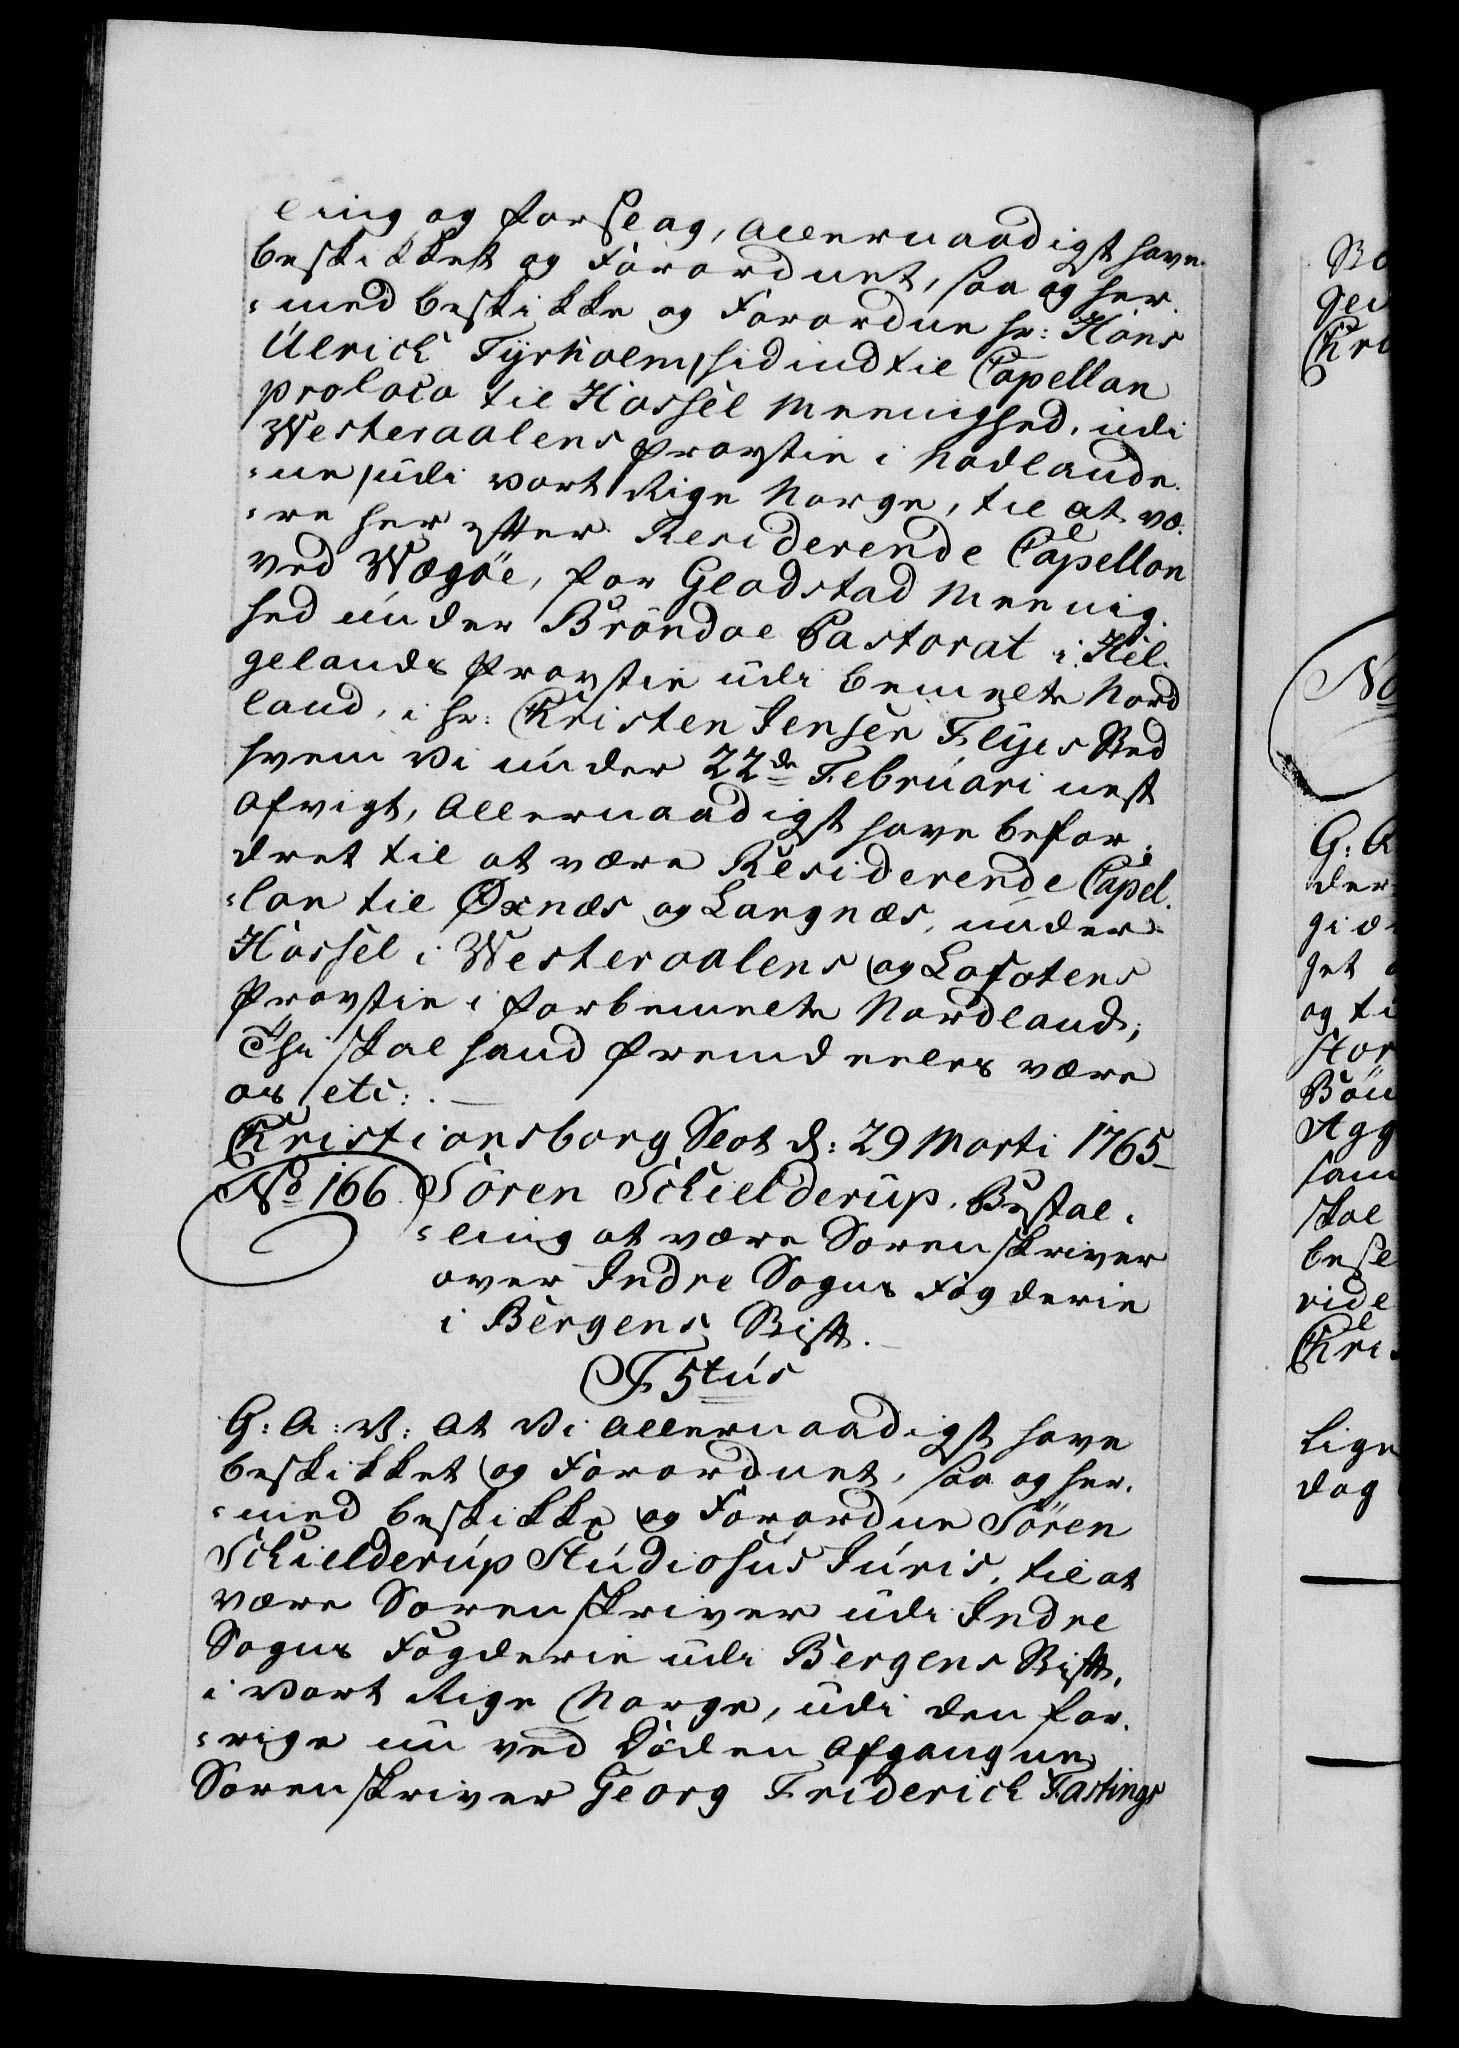 ling og forslag, allernaadigst have
beskikket og Forordnet, saa og her-
=med beskikke og Forordne hr: Hans
Ulrich Tyrholm, hidindtil Capellan
proloco til Hassel Meenighed, udi
Westeraalens Provstie i Nodlande-
=ne, udi vort Rige Norge, til at væ-
=re her efter Residerende Capellan
ved Wægöe, for Gladstad Meenig-
hed under Bröndöe Pastorat i Hel-
gelands Provstie udi bemelte Nord
land, i hr: Christen Jensen Flyes Sted
hvem Vi under 22de Februari nest
afvigt, Allernaadigst have befor-
dret til at være Residerende Capel-
=lan til Øxnæs og Langnæs, under
Hassel i Westeraalens og Lofotens
Provstie i forbemelte Nordland;
Thi skal hand fremdeeles være
os etc: .
Christiansborg Slot d: 29 Marti 1765
No 166. Sören Schielderup. Bestal-
=ling at være Sorenskriver
over Indre Sogns Fogderie
i Bergens Stift.
F 5tus
G: A: V: at Vi allernaadigst have
beskikket og Forordnet, saa og her-
=med beskikke og Forordne Sören
Schielderup Studiosus Juris, til at
være Sorenskriver udi Indre
Sogns Fogderie udi Bergens Stift,
i Vort Rige Norge, udi den for-
=rige nu ved Döden afgangne
Sorenskriver Georg Friderich Fastings
No
G: A
der
get
og ti
Stor
Bön
Agg
sam
skal
besl
Lige
dag